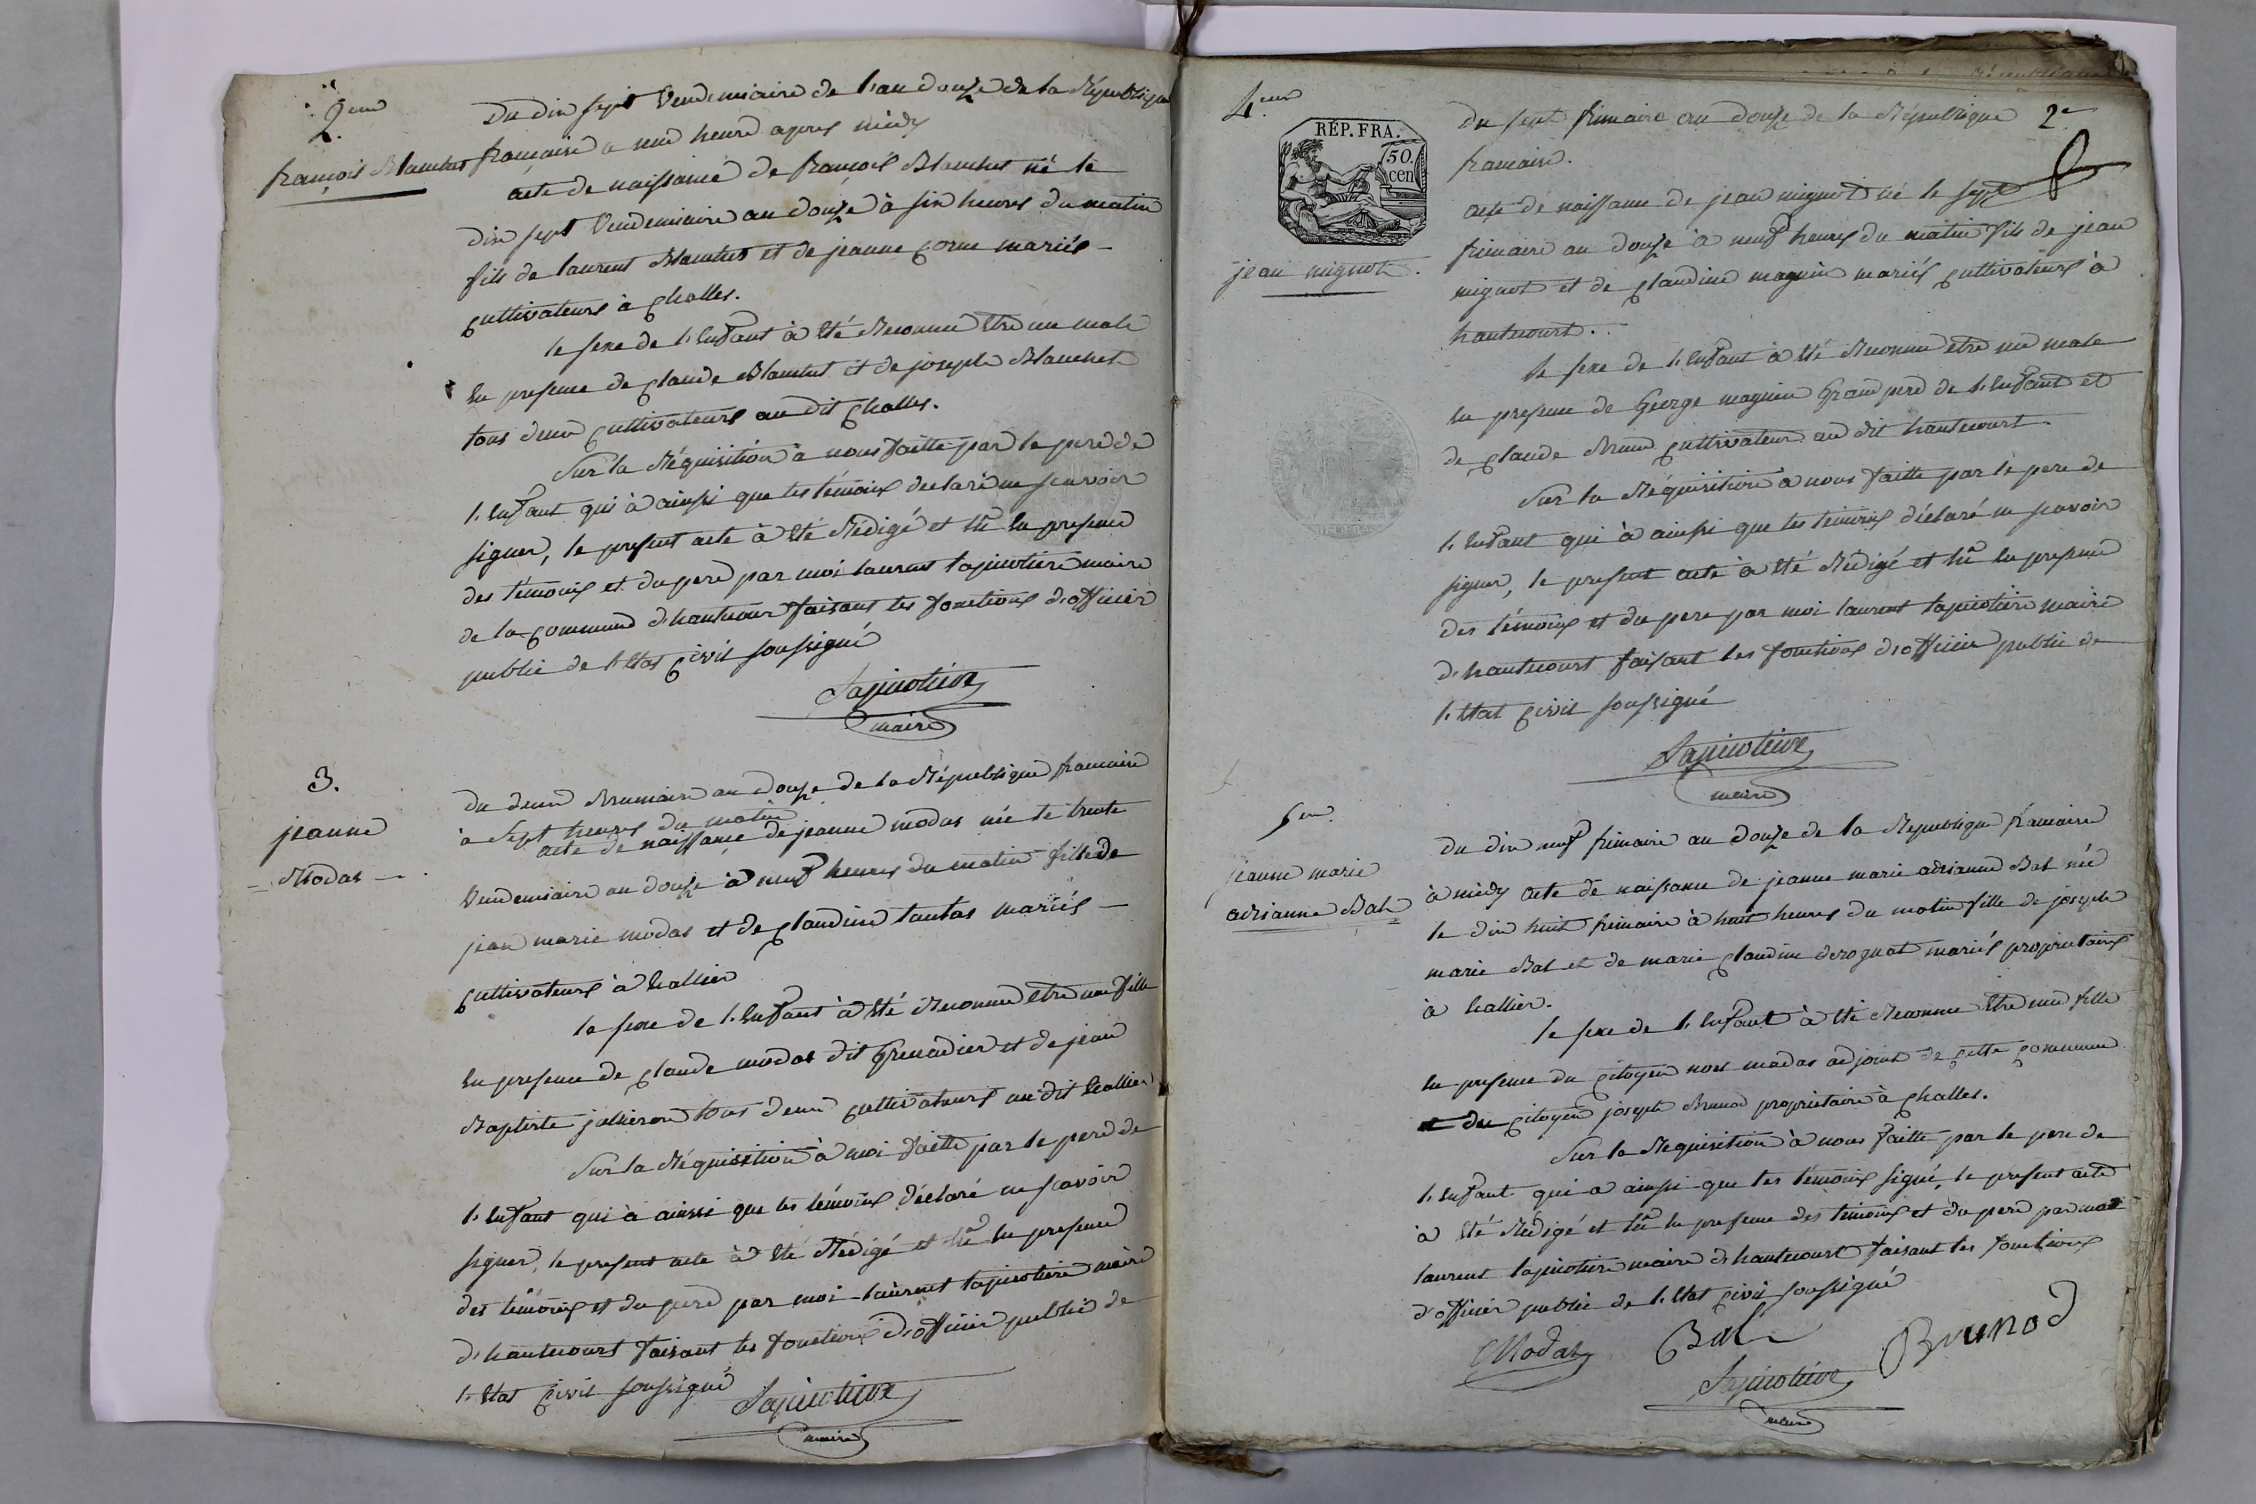 2.eme
françois Blanchet
Du dix sept Vendemiaire de l'an douze de la République
française a une heure apres midy
acte de naissance de françois Blanchet né le
dix sept Vendemiaire an douze à six heures du matin
fils de laurent Blanchet et de jeanne gorne mariés
cultivateurs à challes.
le sexe de l'enfant à été Reconnu être un male
En presence de claude Blanchet et de joseph Blanchet
tous deux cultivateurs au dit challes.
Sur la Réquisition à nous faitte par le pere de
l'enfant qui à ainsi que les témoins declaré ne scavoir
signer, le present acte à été Rédigé et lû En presence
des témoins et du pere par moi laurent lapicotiere maire
de la commune d'hautecour faisant les fonctions d'officier
public de l'Etat civil soussigné
Lapicotiere
maire
3.
jeanne
Modas
Du deux Brumaire an douze de la République francaise
à Sept heures du matin
acte de naissance de jeanne modas née le trente
Vendemiaire an douze à neuf heures du matin fille de
jean marie modas et de claudine tantas mariés
cultivateurs à hallier
le sexe de l'enfant à été Reconnu être une fille
En presence de claude modas dit Grenadier et de jean
Baptiste jolliron tous deux cultivateurs au dit hallier
Sur la Réquisition à moi faitte par le pere de
l'enfant qui à ainsi que les témoins déclaré ne scavoir
signer, le present acte à été Rédigé et lû En presence
des témoins et du pere par moi laurent lapicotiere maire
d'hautecourt faisant les fonctions d'officier public de
l'Etat civil soussigné
Lapicotiere
maire
4.eme
RÉP. FRA.
50.
cen
jean mignot.
2e
Du sept frimaire an douze de la République
francaise.
acte de naissance de jean mignot né le sept
frimaire an douze à neuf heures du matin fils de jean
mignot et de claudine magnin mariés cultivateurs à
hautecourt.
le sexe de l'enfant à été Reconnu etre un male
En presence de George magnin Grand pere de l'enfant et
de claude Brun cultivateur au dit hautecourt
Sur la Réquisition à nous faitte par le pere de
l'enfant qui à ainsi que les témoins déclaré ne scavoir
signer, le present acte à été Rédigé et lû En presence
des témoins et du pere par moi laurent lapicotiere maire
d'hautecourt faisant les fonctions d'officier public de
l'Etat civil soussigné
Lapicotiere
maire
5eme.
jeanne marie
adrianne Bal
Du dix neuf frimaire an douze de la République francaise
à midy acte de naissance de jeanne marie adrianne Bal née
le dix huit frimaire à huit heures du matin fille de joseph
marie Bal et de marie claudine derognat mariés proprietaires
à hallier.
le sexe de l'enfant à été Reconnu Etre une fille
En presence du citoyen noel modas adjoint de cette commune
et du citoyen joseph Brunod proprietaire à challes.
Sur la Requisition à nous faitte par le pere de
l'enfant qui a ainsi que les témoins signé, le present acte
à été Rédigé et lû En presence des témoins et du pere par moi
laurent lapicotiere maire d'hautecourt faisant les fonctions
d'officier public de l'Etat civil soussigné
Modas Bal Brunod
Lapicotiere
maire